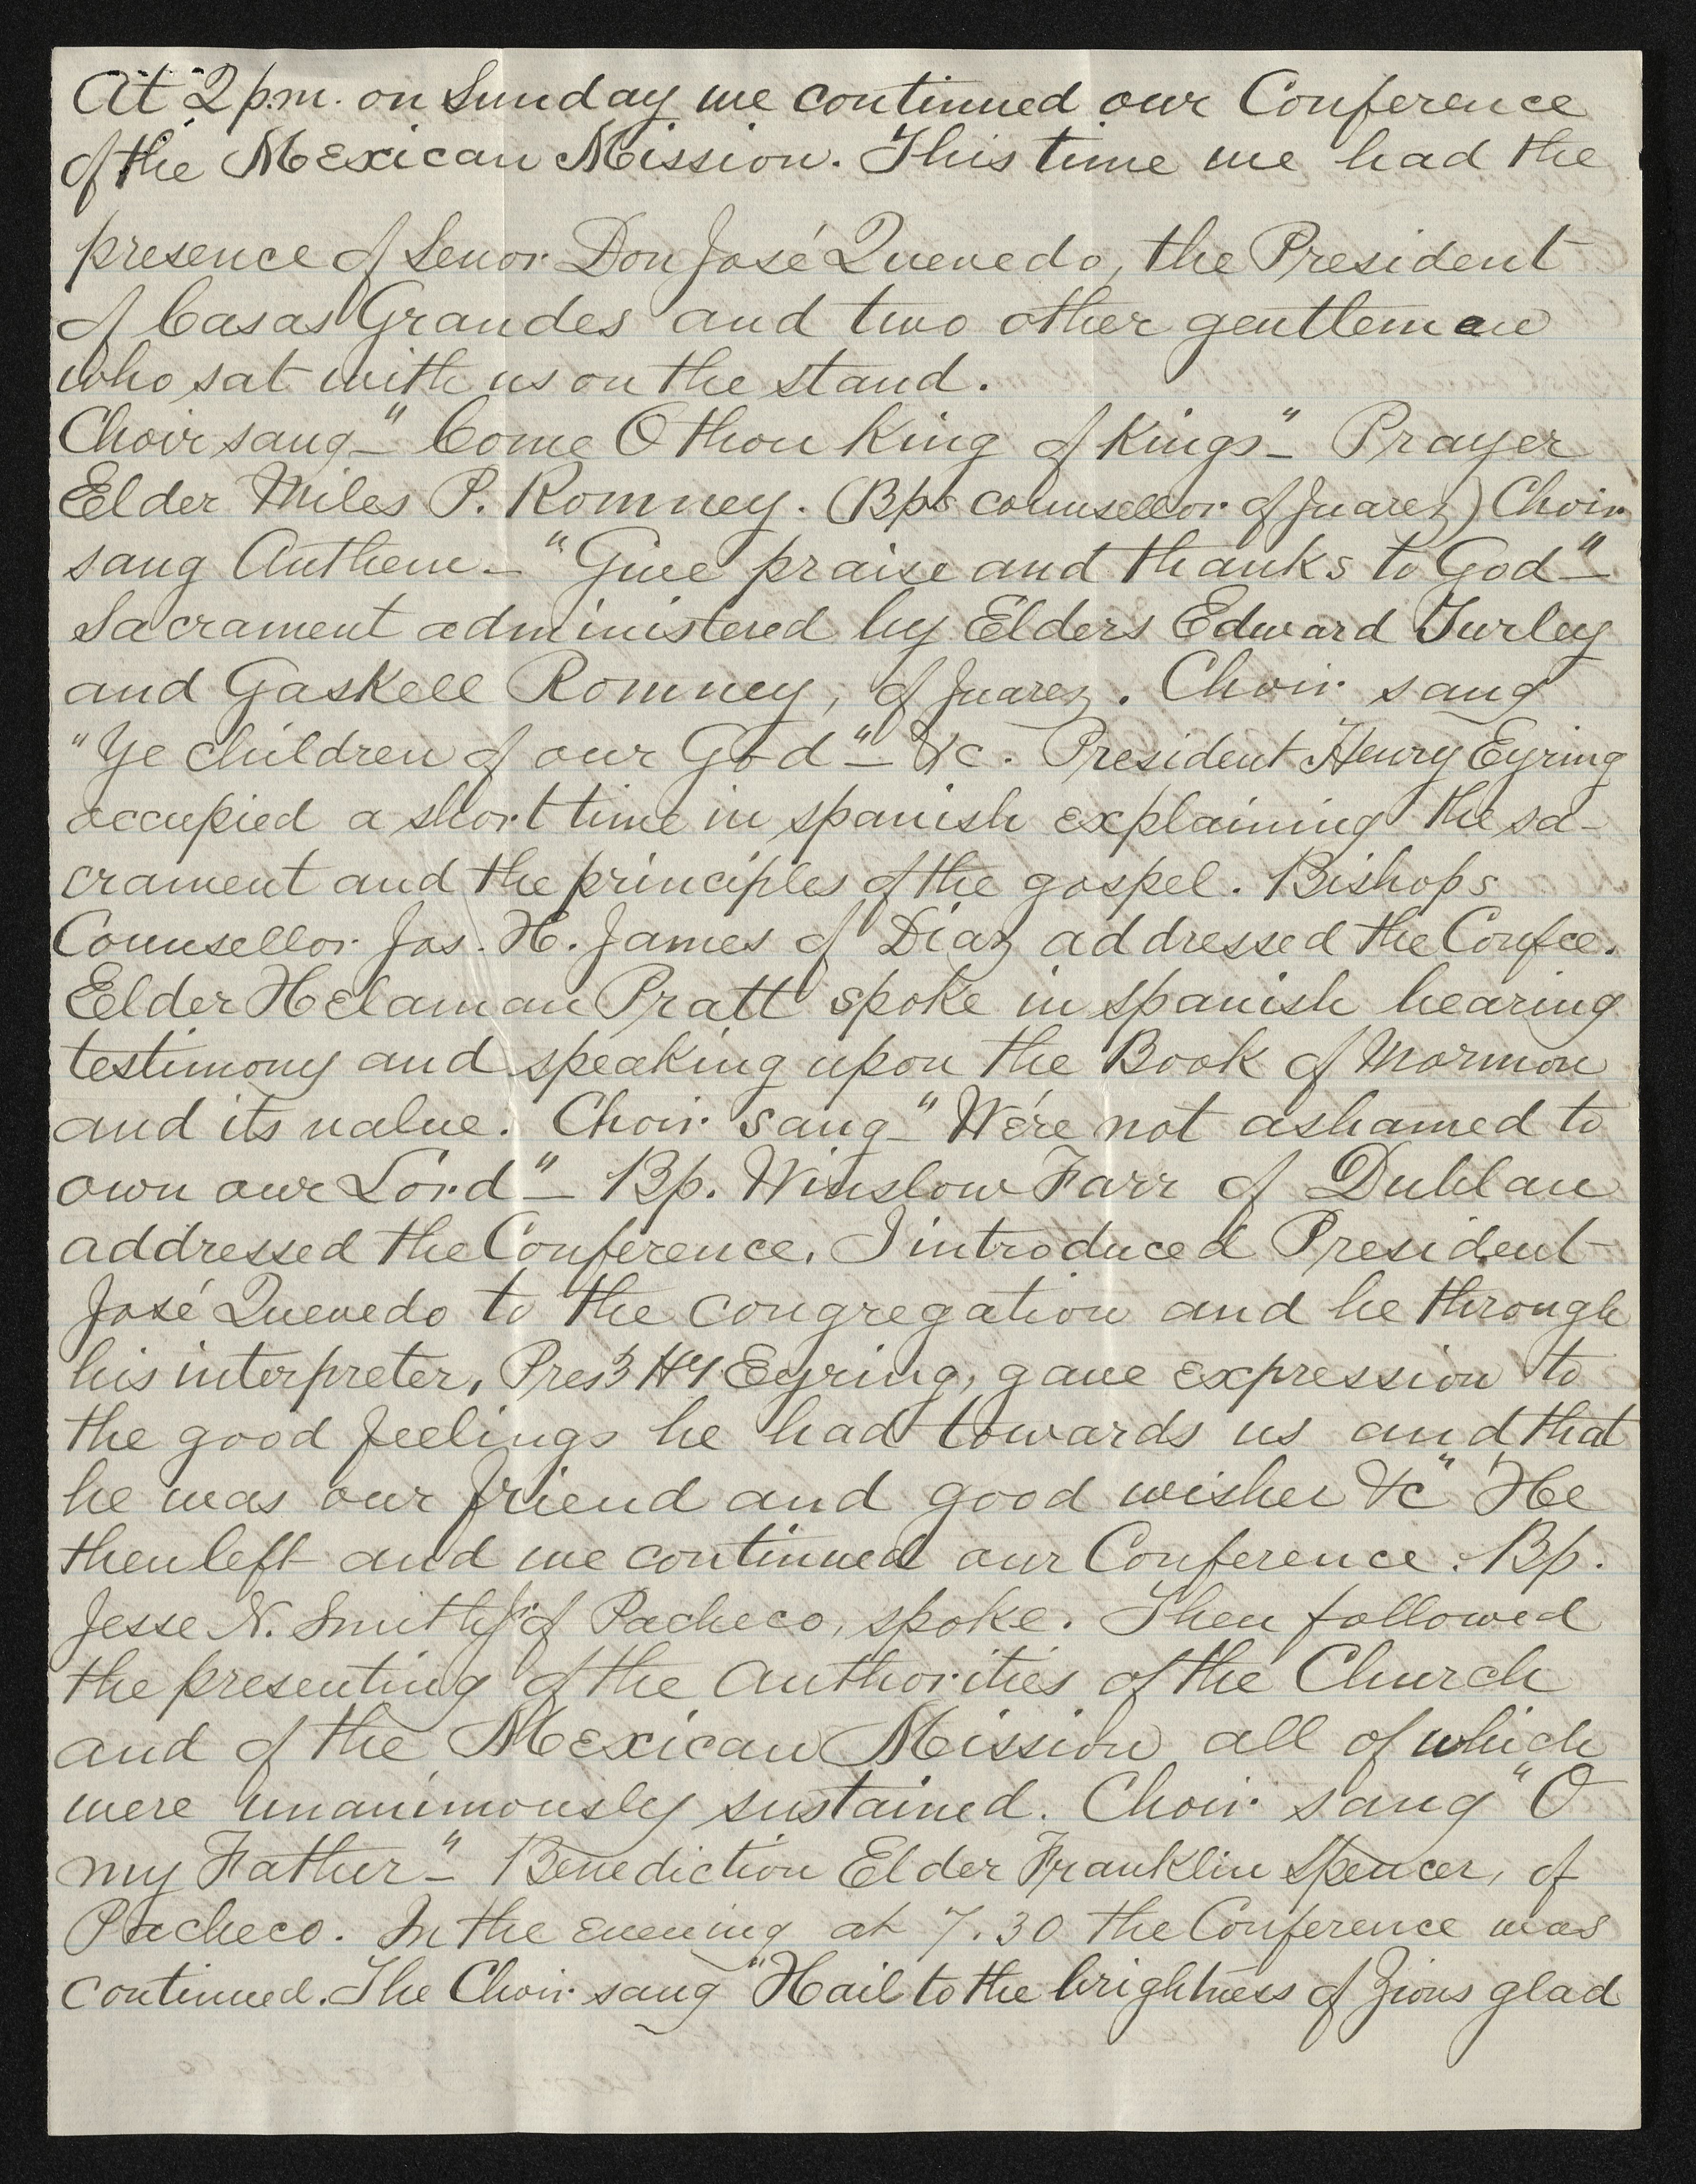 At 2 p.m. on Sunday we continued our Conference
of the Mexican Mission. This time we had the
presence of Senor Don José Quevedo, the President
of Casas Grandes and two other gentlemen
who sat with us on the stand.
Choir sang – "Come O thou King of Kings" – Prayer
Elder Miles P. Romney. (Bps counsellor of Juarez) Choir
sang Anthem – "Give praise and thanks to God" –
Sacrament administered by Elders Edward Turley
and Gaskell Romney, of Juarez. Choir sang
"Ye children of our God" – &c. President Henry Eyring
occupied a short time in spanish explaining the sa-
crament and the principles of the gospel. Bishops
Counsellor Jos. H. James of Diaz addressed the Confce.
Elder Helaman Pratt spoke in spanish bearing
testimony and speaking upon the Book of Mormon
and its value. Choir sang – "We're not ashamed to
own our Lord" – Bp. Winslow Farr of Dublan
addressed the Conference. I introduced President
José Quevedo to the congregation and he through
his interpreter, Prest Hy Eyring, gave expression to
the good feelings he had towards us and that
he was our friend and good wisher &c" He
then left and we continued our Conference. Bp.
Jesse N. Smith Jr of Pacheco, spoke. Then followed
the presenting of the Authorities of the Church
and of the Mexican Mission all of which
were unanimously sustained. Choir sang "O
my Father" – Benediction Elder Franklin Spencer, of
Pacheco. In the evening at 7.30 the Conference was
continued. The Choir sang "Hail to the brightness of Zions glad